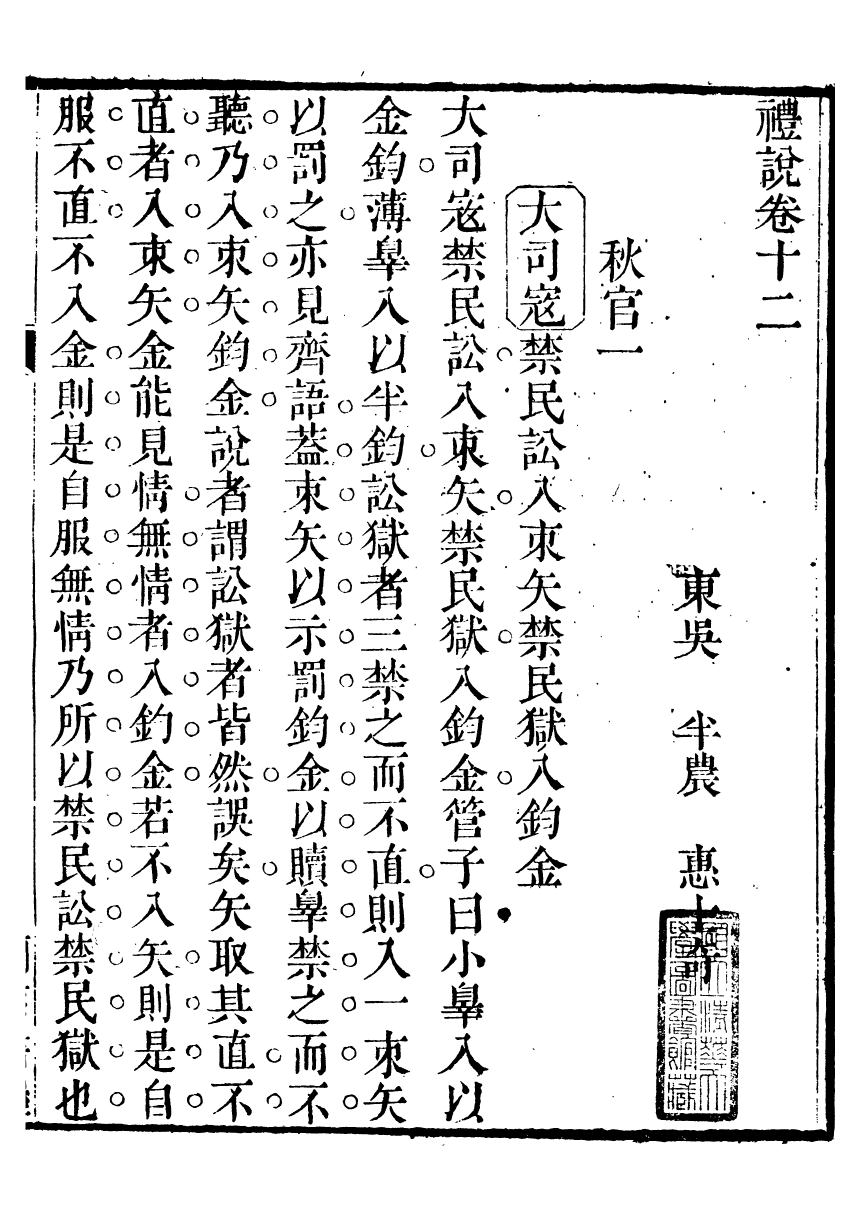 禮說卷十二
東吳　半農　惠士奇
秋官一
大司寇禁民訟入束矢禁民獄入鈞金
大司寇禁民訟入束矢禁民獄入鈞金管子曰小辠入以
金鈞薄辠入以半鈞訟獄者三禁之而不直則入一束矢
以罰之亦見齊語葢束矢以示罰鈞金以贖辠禁之而不
聽乃入束矢鈞金說者謂訟獄者皆然誤矣矢取其直不
直者入束矢金能見情無情者入鈞金若不入矢則是自
服不直不入金則是自服無情乃所以禁民訟禁民獄也